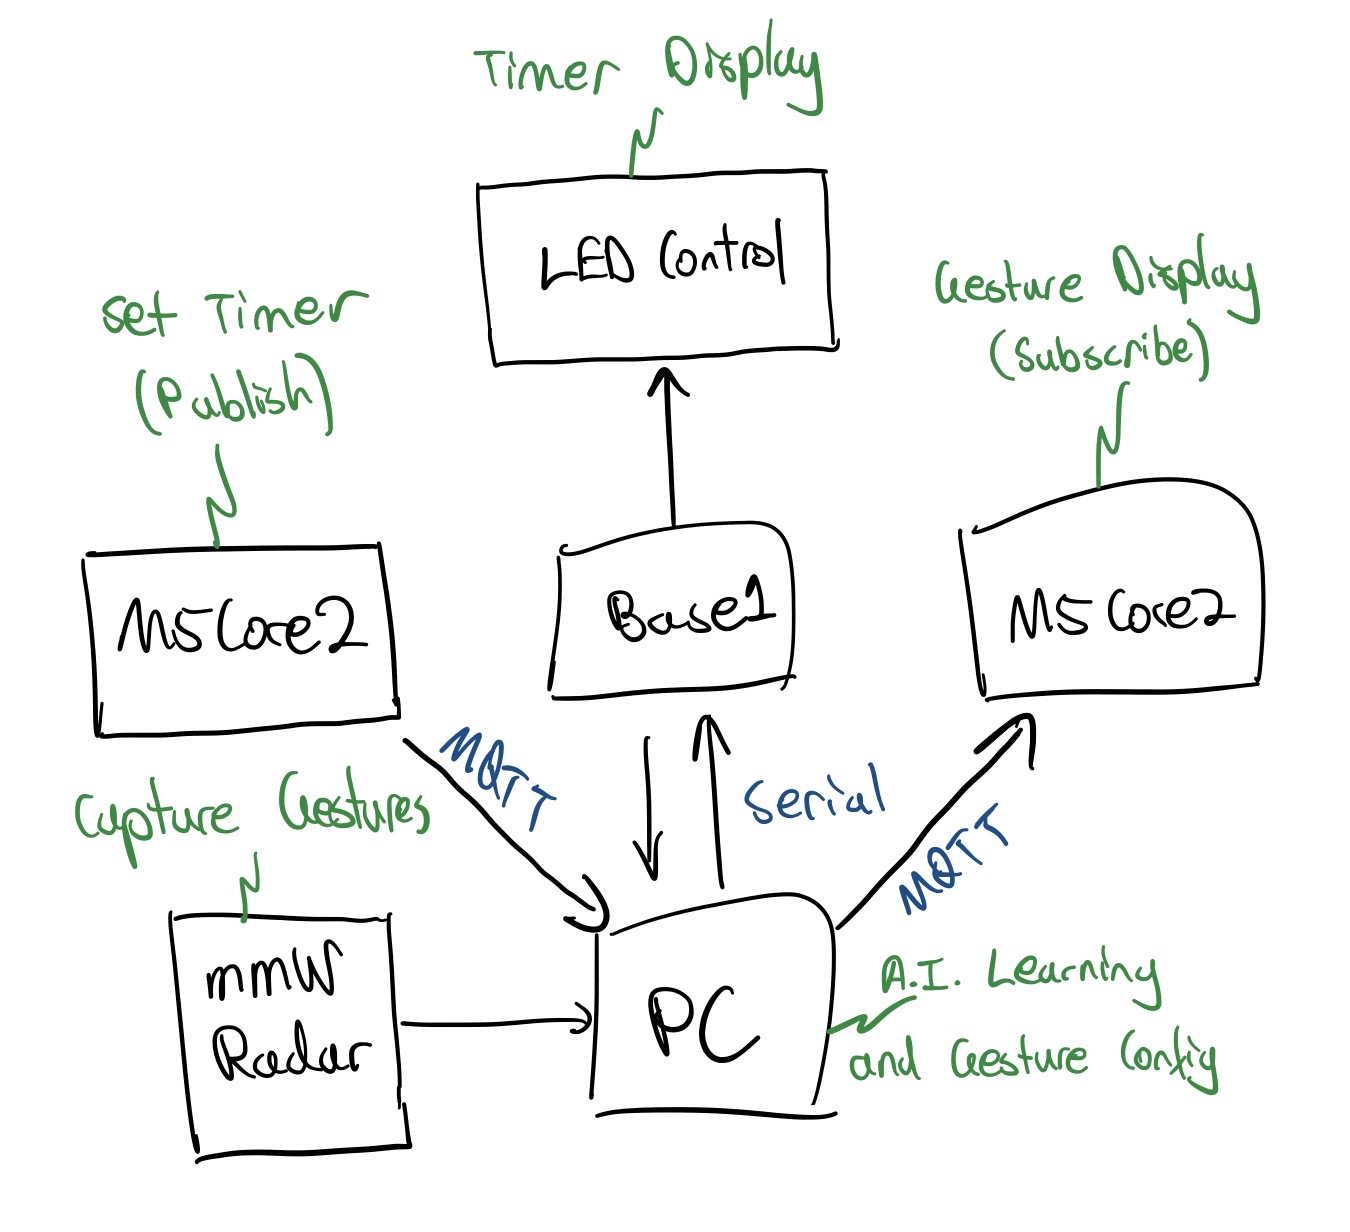 Timer Display
LED Control
set Timer
(Publish)
Gesture Display
(Subscribe)
M5Core2
Base1
M5Core2
MQTT
Serial
MQTT
Capture Gestures
mmW
Radar
PC
A.I. Learning
and Gesture Config